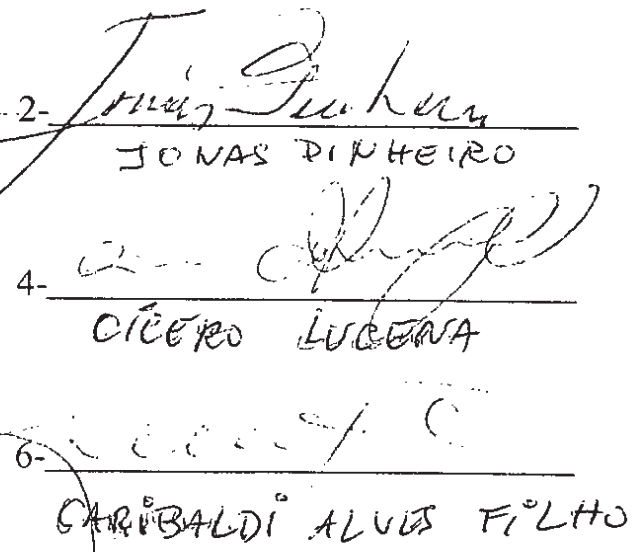 2-
JONAS PINHEIRO
4-
CÍCERO LUCENA
6-
GARIBALDI ALVES FILHO